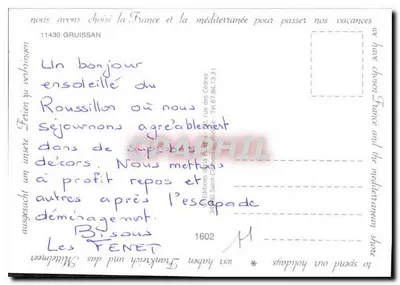 nous avons choisi la France et la méditerranée pour passer nos vacances
11430 GRUISSAN
Un bonjour
ensoleillé du
Roussillon où nous
séjournons agréablement
dans de superbes
décors. Nous mettons
à profit repos et
autres après l'escapade
déménagement.
Bisous
Les FENET
1602
we have chosen France and the mediterranean shore
to spend our holidays * wir haben Frankreich und das Mittelmeer
ausgesucht um unsere Ferien zu verbringen